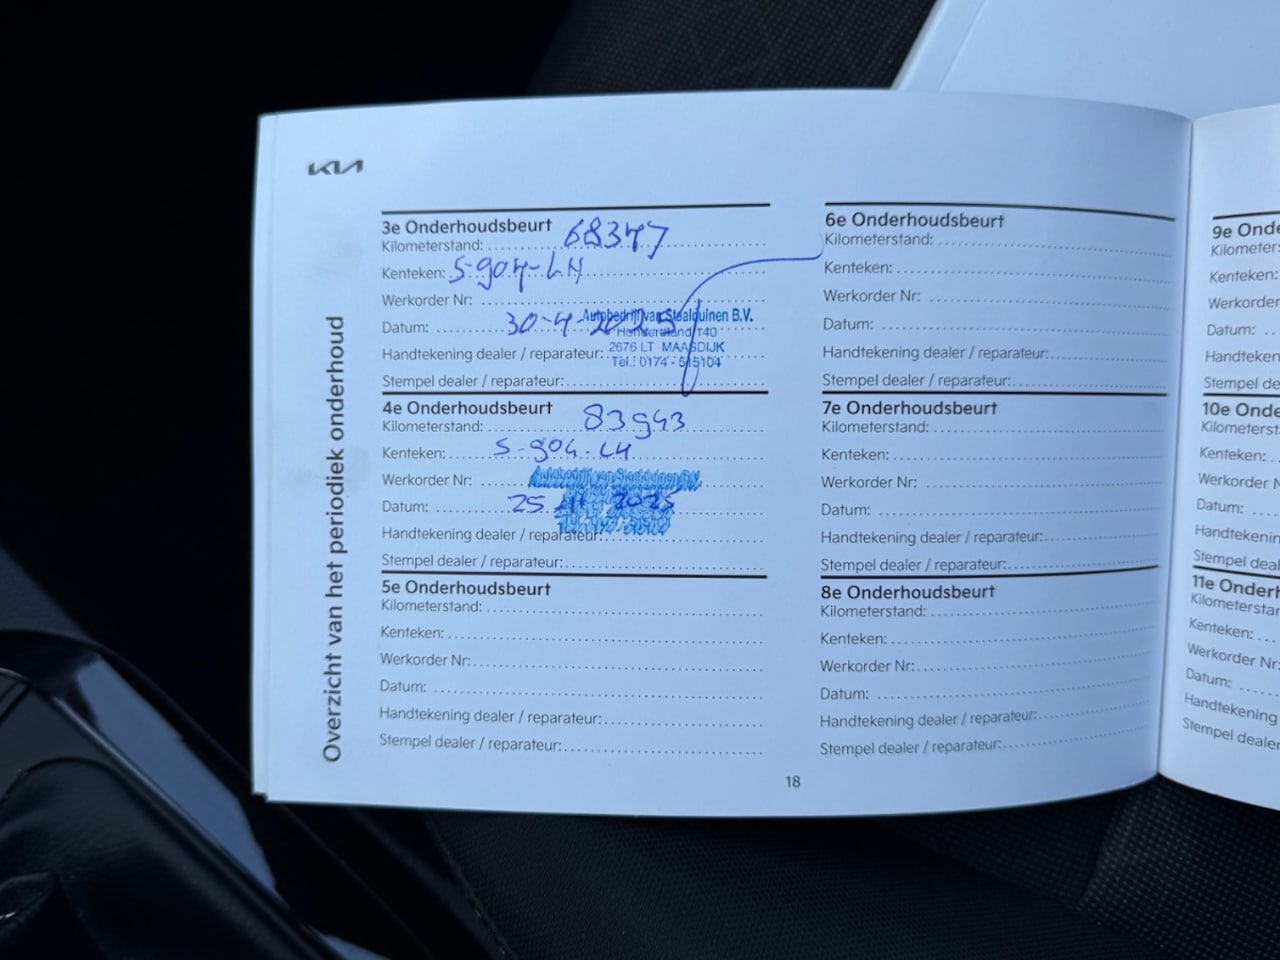 KIA
Overzicht van het periodiek onderhoud
3e Onderhoudsbeurt
Kilometerstand: 68347
Kenteken: S-904-LH
Werkorder Nr:
Datum: 30-4-2025
Handtekening dealer / reparateur:
Stempel dealer / reparateur:
Autobedrijf van Staalduinen B.V.
140
2676 LT MAASDIJK
Tel.: 0174 - 515104
4e Onderhoudsbeurt
Kilometerstand: 83943
Kenteken: S-904-LH
Werkorder Nr:
Autobedrijf van Staalduinen B.V.
Datum: 25 11 2025
Handtekening dealer / reparateur:
Stempel dealer / reparateur:
5e Onderhoudsbeurt
Kilometerstand:
Kenteken:
Werkorder Nr:
Datum:
Handtekening dealer / reparateur:
Stempel dealer / reparateur:
6e Onderhoudsbeurt
Kilometerstand:
Kenteken:
Werkorder Nr:
Datum:
Handtekening dealer / reparateur:
Stempel dealer / reparateur:
7e Onderhoudsbeurt
Kilometerstand:
Kenteken:
Werkorder Nr:
Datum:
Handtekening dealer / reparateur:
Stempel dealer / reparateur:
8e Onderhoudsbeurt
Kilometerstand:
Kenteken:
Werkorder Nr:
Datum:
Handtekening dealer / reparateur:
Stempel dealer / reparateur:
18
9e Onde
Kilometers
Kenteken:
Werkorder
Datum:
Handteken
Stempel de
10e Onde
Kilometerst
Kenteken:
Werkorder N
Datum:
Handtekenin
Stempel deal
11e Onderh
Kilometerstar
Kenteken:
Werkorder Nr:
Datum:
Handtekening
Stempel dealer